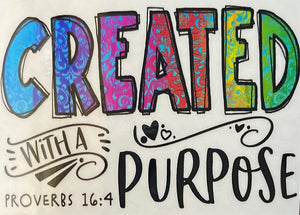 CREATED
WITH A
PURPOSE
PROVERBS 16:4